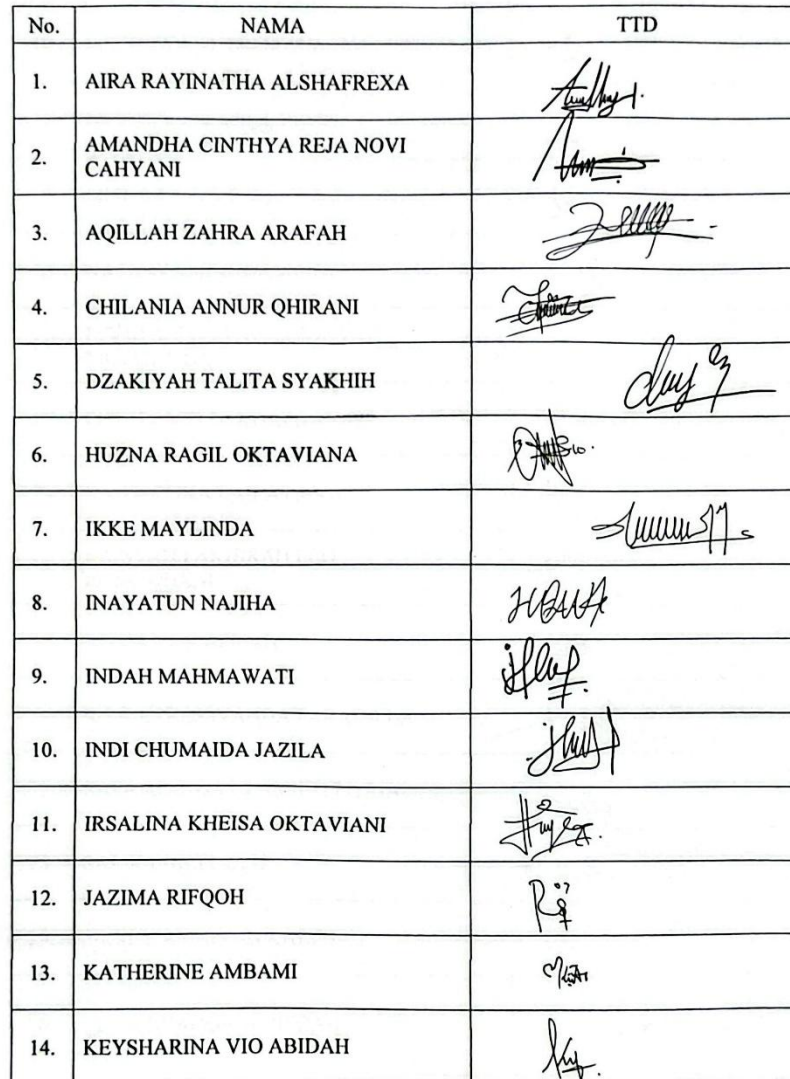 No. NAMA TTD
1. AIRA RAYINATHA ALSHAFREXA
2. AMANDHA CINTHYA REJA NOVI
CAHYANI
3. AQILLAH ZAHRA ARAFAH
4. CHILANIA ANNUR QHIRANI
5. DZAKIYAH TALITA SYAKHIH
6. HUZNA RAGIL OKTAVIANA
7. IKKE MAYLINDA
8. INAYATUN NAJIHA
9. INDAH MAHMAWATI
10. INDI CHUMAIDA JAZILA
11. IRSALINA KHEISA OKTAVIANI
12. JAZIMA RIFQOH
13. KATHERINE AMBAMI
14. KEYSHARINA VIO ABIDAH